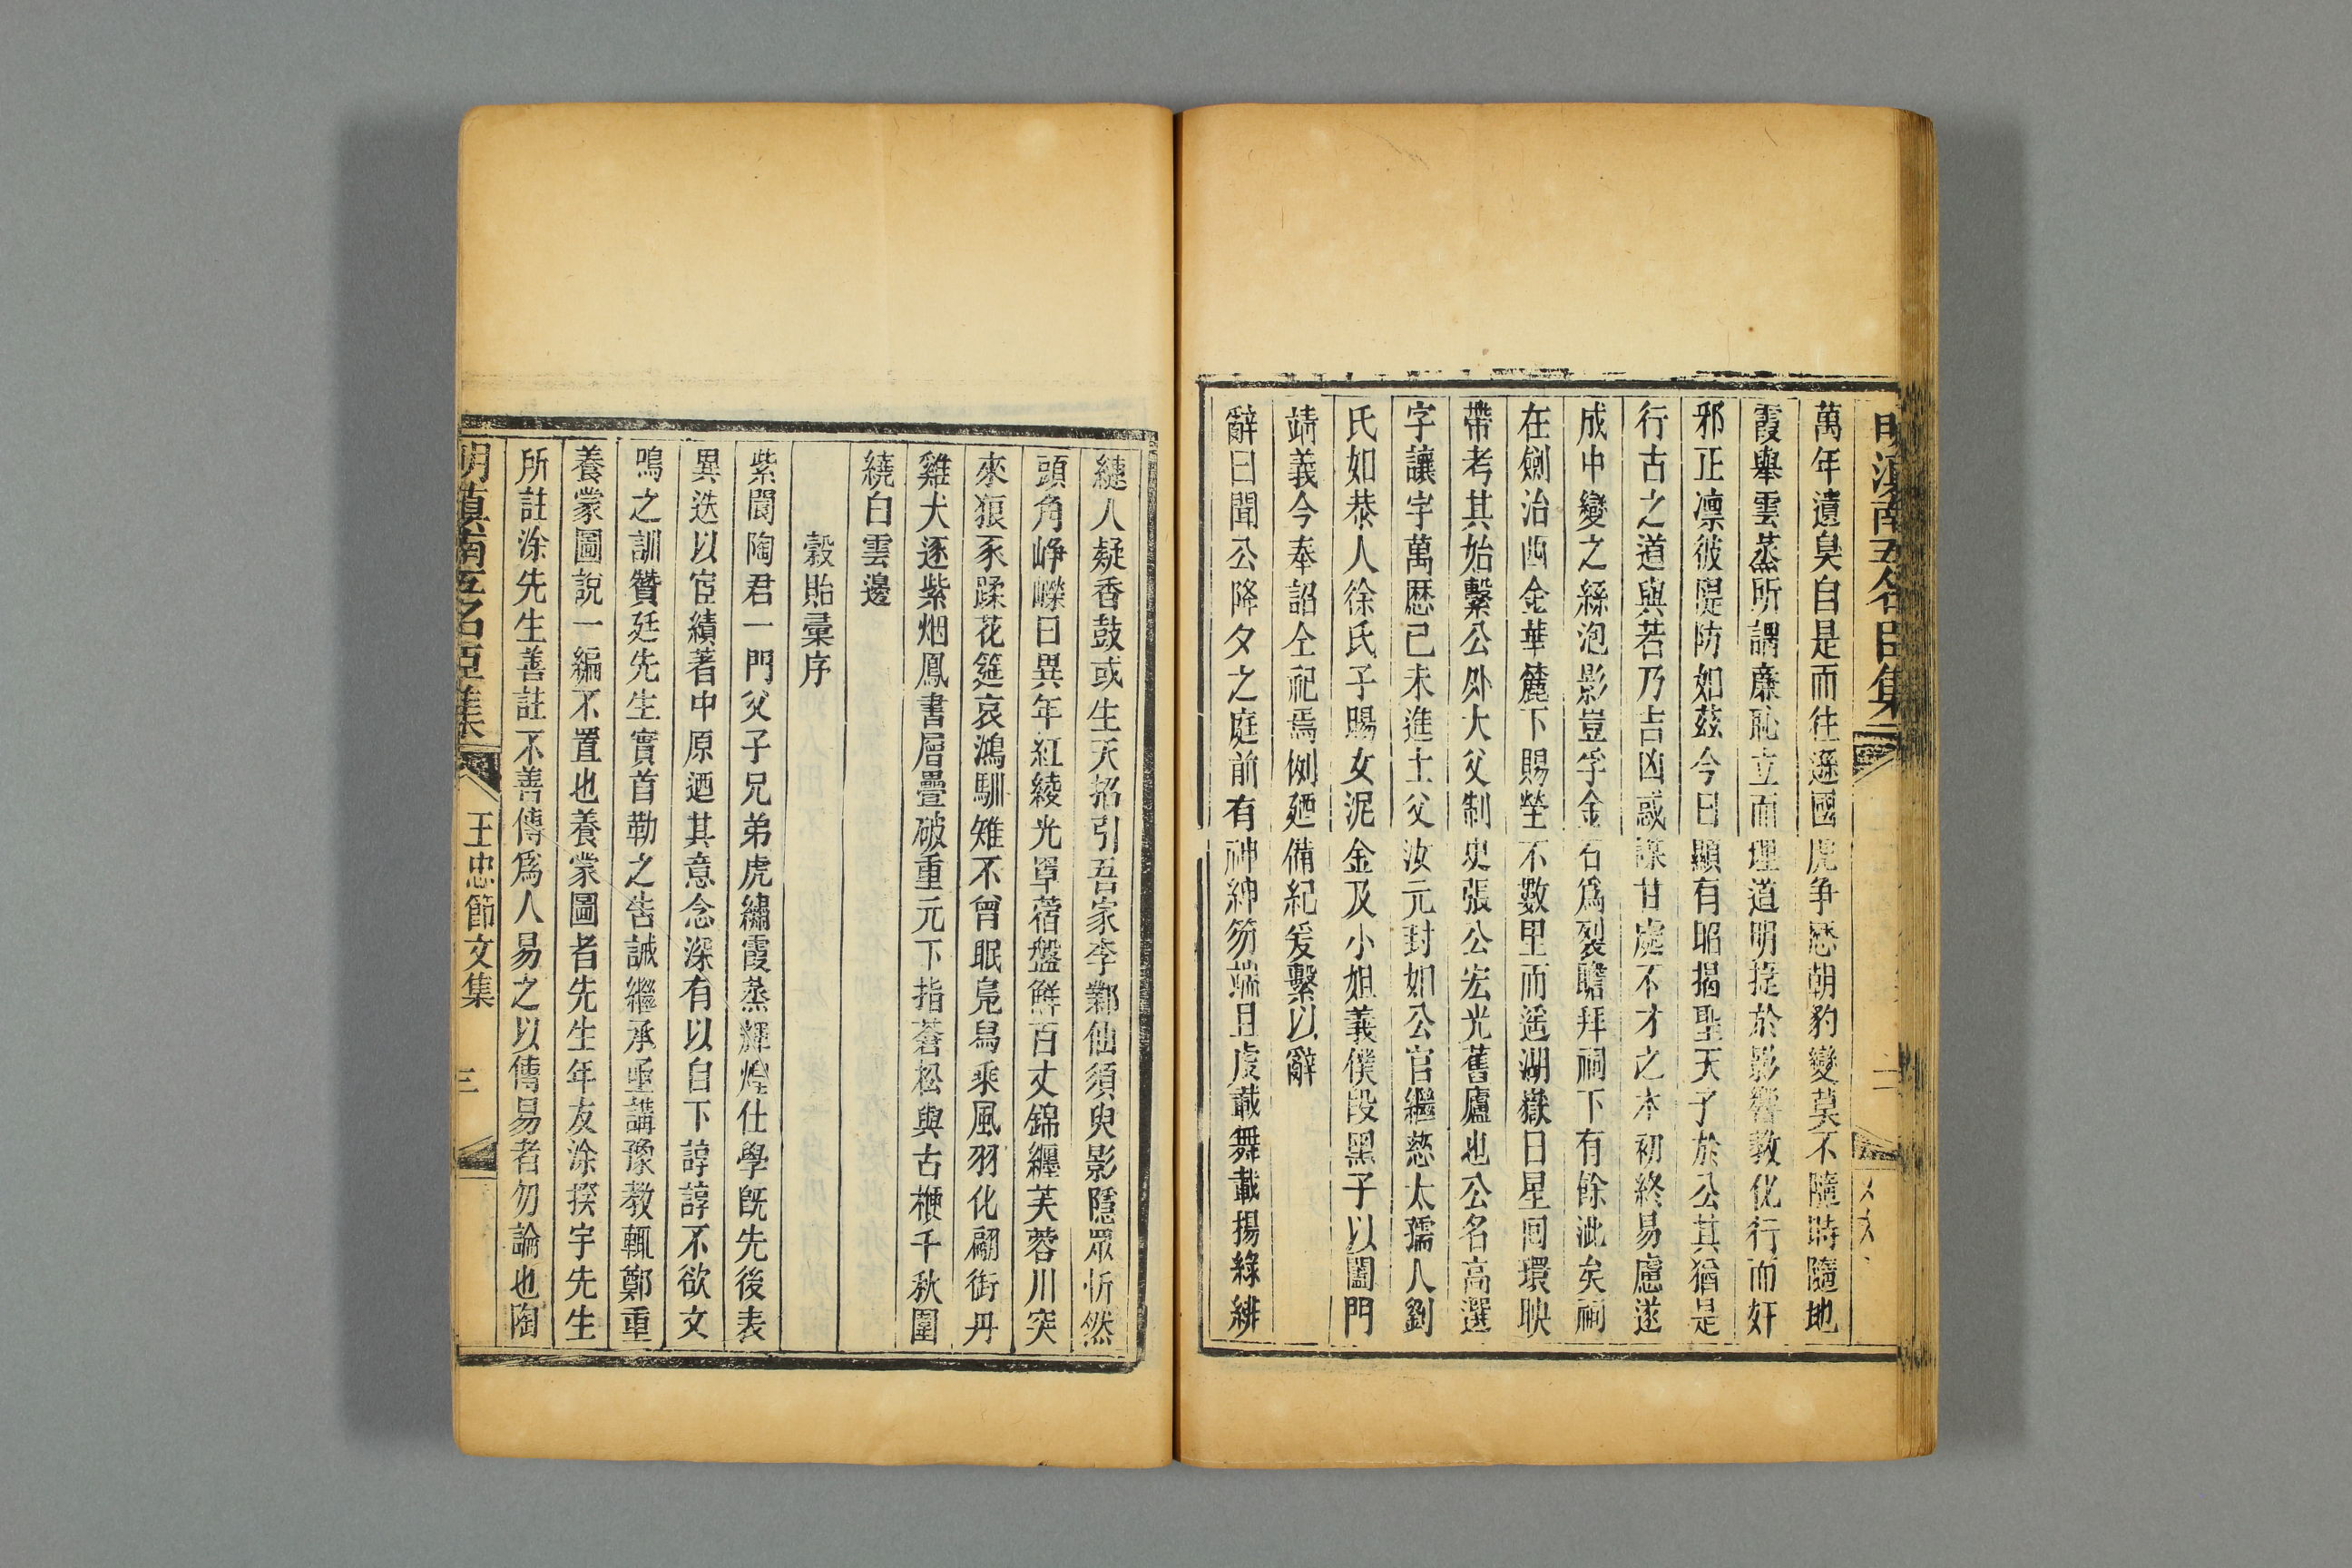 明滇南五名臣集
二
萬年遺臭自是而往遜國虎爭怒朝豹變莫不隨時隨地
霞舉雲蒸所謂廉恥立而理道明捷於影響教化行而奸
邪正凛彼隄防如茲今日顯有昭揭聖天子於公其猶是
行古之道與若乃吉凶惑諜甘處不才之木初終易慮遂
成中變之絲泡影豈孚金石為裂瞻拜祠下有餘泚矣祠
在劍治西金華麓下賜塋不數里而遥湖嶽日星囘環映
帶考其始繫公外大父制史張公宏光舊廬也公名高選
字讓宇萬歷己未進士父汝元封如公官繼慈太孺人劉
氏如恭人徐氏子賜女泥金及小姐義僕段黑子以闔門
靖義今奉詔仝祀焉例廼備紀爰繫以辭
辭曰聞公降夕之庭前有神紳笏端且虔載舞載揚綠緋
縺人疑香鼓或生天招引吾家李鄴仙須臾影隱眾忻然
頭角崢嶸日異年紅綾光罩蓿盤鮮百丈錦纒芙蓉川突
來狠豕蹂花筵哀鴻馴雉不曾眠凫舄乘風羽化翩街丹
雞犬逐紫烟鳳書層疊破重元下指蒼松與古楩千秋圍
繞白雲邊
穀貽彙序
紫閬陶君一門父子兄弟虎繡霞蒸輝煌仕學旣先後表
異迭以宦績著中原迺其意念深有以自下諄諄不欲文
鳴之訓贊廷先生實首勒之告誡繼承亟講豫教輒鄭重
養蒙圖說一編不置也養蒙圖者先生年友涂揆宇先生
所註涂先生善註不善傳為人易之以傳易者勿論也陶
明滇南五名臣集
王忠節文集
三